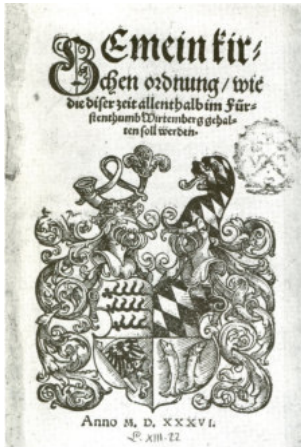 Gemein kir⸗
chen ordnung / wie
die diser zeit allenthalb im Für⸗
stenthumb Wirtemberg gehal⸗
ten soll werden.
Anno M. D. XXXVI.